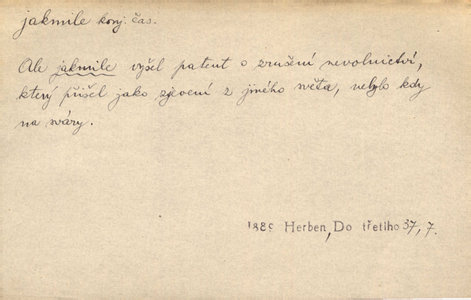 jakmile konj. čas.
Ale jakmile vyšel patent o zrušení nevolnictví,
který přišel jako zjevení z jiného světa, nebylo kdy
na sváry.
1889 Herben, Do třetího 37, 7.